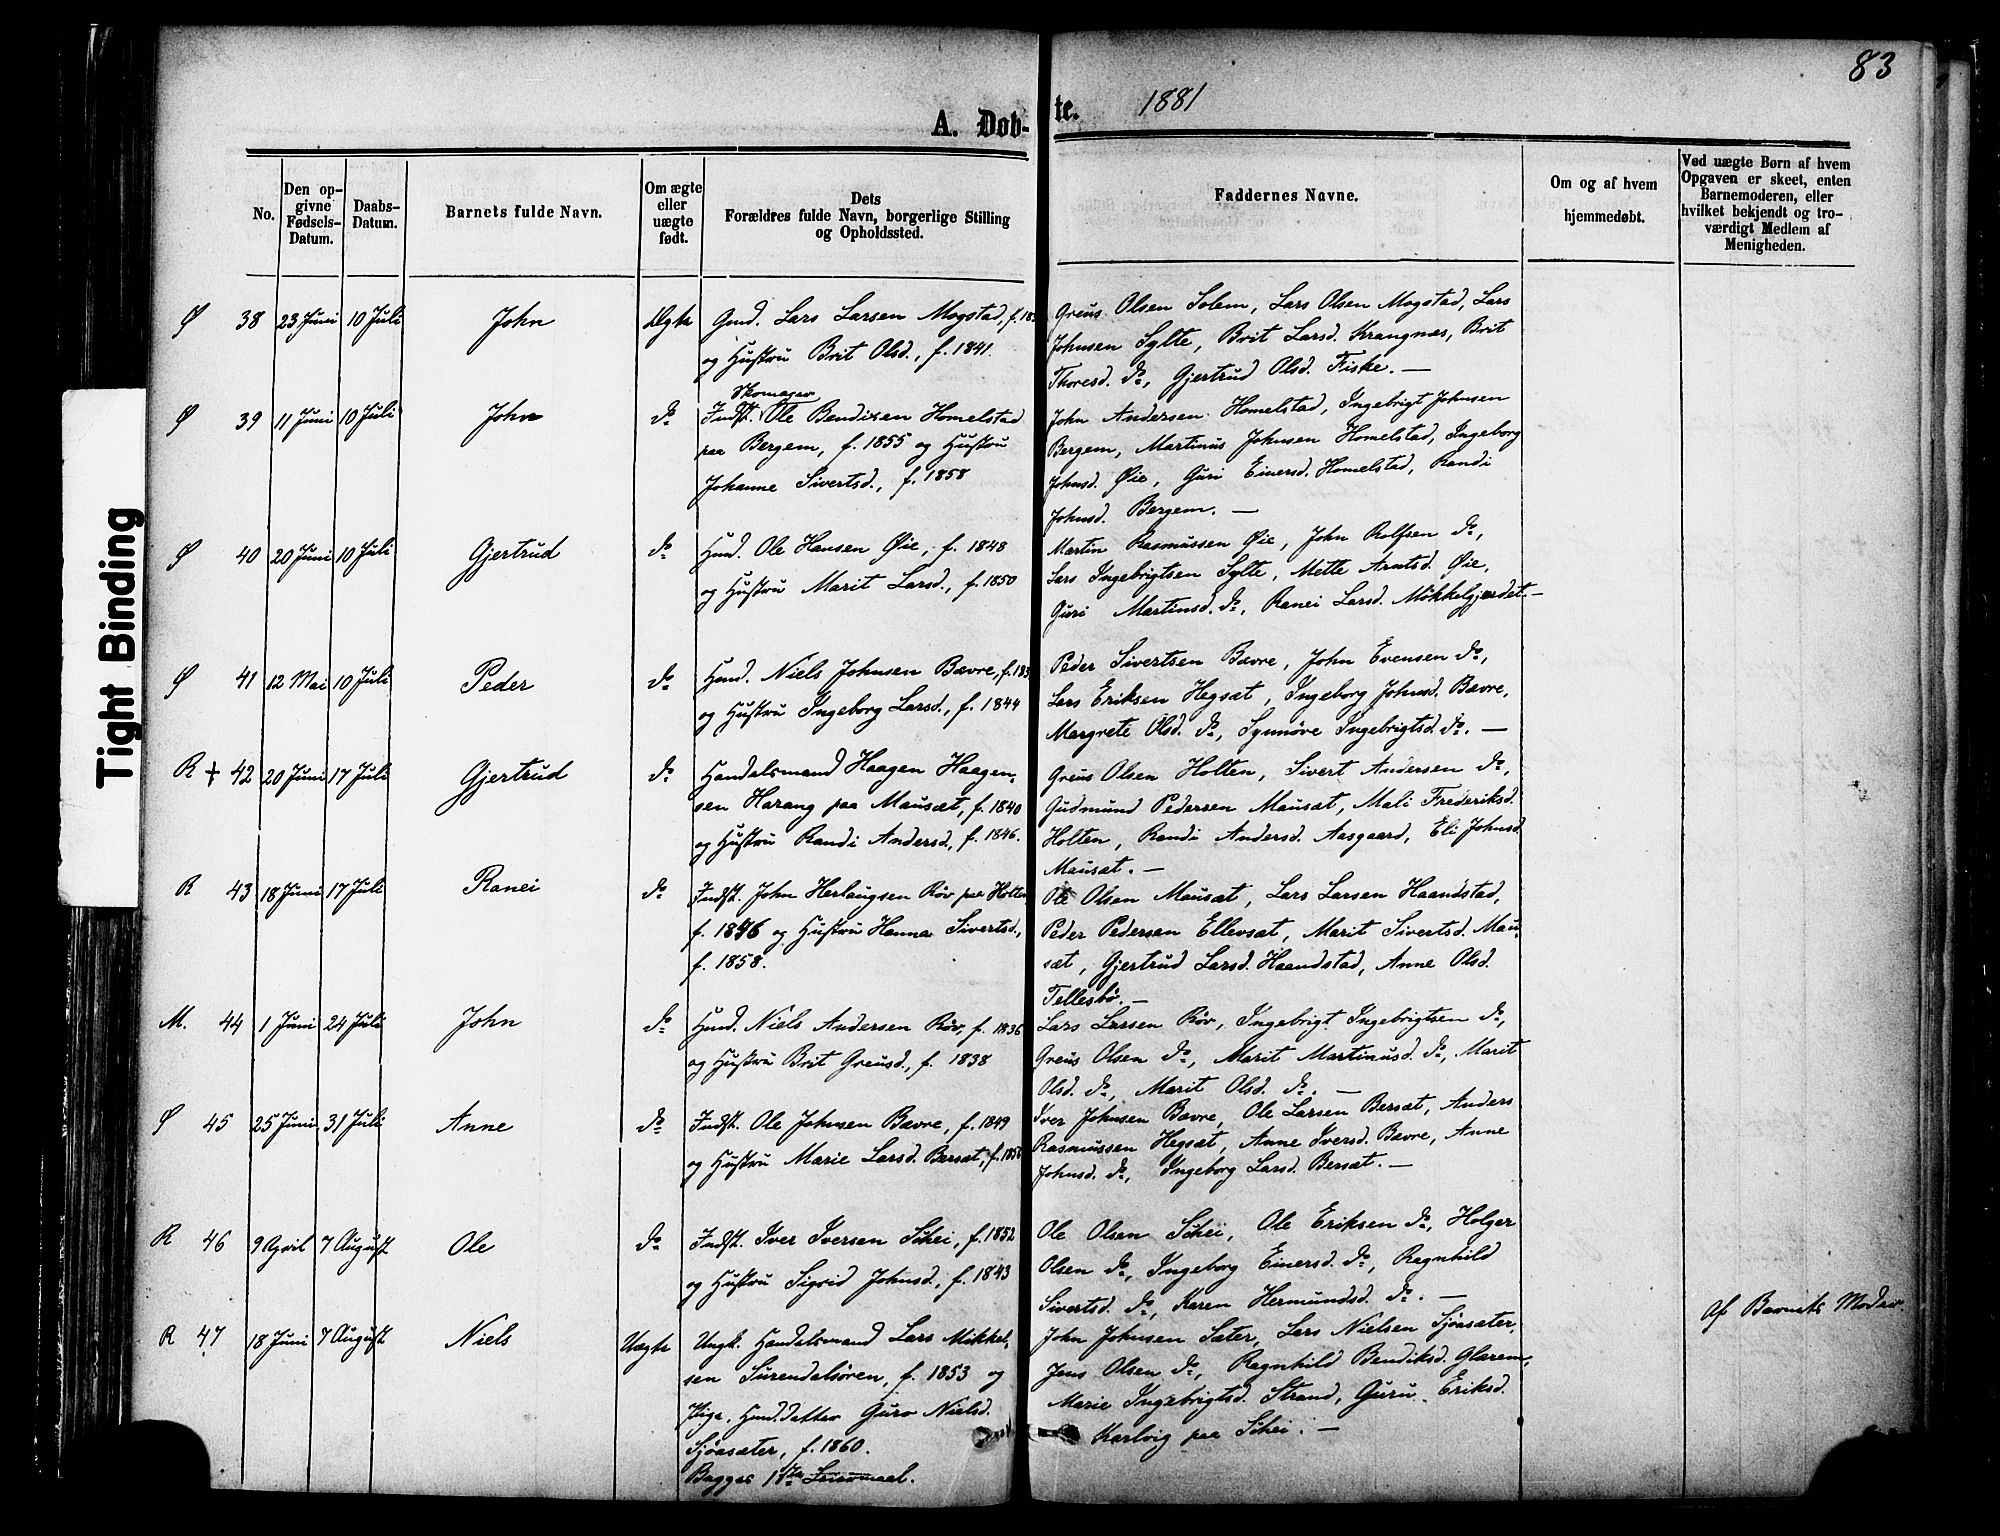 83
A. Døb-te. 1881
No.
Den op-
givne
Fødsels-
Datum.
Daabs-
Datum.
Barnets fulde Navn.
Om ægte
eller
uægte
født.
Dets
Forældres fulde Navn, borgerlige Stilling
og Opholdssted.
Faddernes Navne.
Om og af hvem
hjemmedøbt.
Ved uægte Børn af hvem
Opgaven er skeet, enten
Barnemoderen, eller
hvilket bekjendt og tro-
værdigt Medlem af
Menigheden.
Tight Binding
Ø 38 23 Juni 10 Juli John Ægte
Gmd. Lars Larsen Mogstad, f. 18
og Hustru Brit Olsd., f. 1841.
Greus Olsen Solem, Lars Olsen Mogstad, Lars
Johnsen Sylte, Brit Larsd. Krangnæs, Brit
Thoresd. do, Gjertrud Olsd. Fiske. —
Ø 39 11 Juni 10 Juli John do
Skomager
Indst. Ole Bendixen Homelstad
paa Bergem, f. 1855 og Hustru
Johanne Sivertsd., f. 1858
John Andersen Homelstad, Ingebrigt Johnsen
Bergem, Martinus Johnsen Homelstad, Ingeborg
Johnsd. Øie, Guri Einersd. Homelstad, Randi
Johnsd. Bergem. —
Ø 40 20 Juni 10 Juli Gjertrud do
Hmd. Ole Hansen Øie, f. 1848
og Hustru Marit Larsd., f. 1850
Martin Rasmussen Øie, John Rolfsen do,
Lars Ingebrigtsen Sylte, Mette Arntsd. Øie,
Guri Martinsd. do, Ranei Larsd. Møkkelgjerdet. —
Ø 41 12 Mai 10 Juli Peder do
Hmd. Niels Johnsen Bævre, f. 183
og Hustru Ingeborg Larsd., f. 1844
Peder Sivertsen Bævre, John Evensen do,
Lars Eriksen Hegsæt, Ingeborg Johnsd. Bævre,
Margrete Olsd. do, Synnøve Ingebrigtsd. do. —
R + 42 20 Juni 17 Juli Gjertrud do
Handelsmand Haagen Haagen-
sen Harang paa Mausæt, f. 1840
og Hustru Randi Andersd., f. 1846.
Greus Olsen Holten, Sivert Andersen do,
Gudmund Pedersen Mausæt, Mali Frederiksd.
Holten, Randi Andersd. Aasgaard, Eli Johnsd.
Mausæt. —
R 43 18 Juni 17 Juli Ranei do
Indst. John Herlaugsen Røv paa Holten,
f. 1846 og Hustru Hanna Sivertsd.,
f. 1858.
Ole Olsen Mausæt, Lars Larsen Haandstad,
Peder Pedersen Ellevsæt, Marit Sivertsd. Mau-
sæt, Gjertrud Larsd. Haandstad, Anne Olsd.
Tellesbø. —
M. 44 1 Juni 24 Juli John do
Hmd. Niels Andersen Røv, f. 1836
og Hustru Brit Greusd., f. 1838
Lars Larsen Røv, Ingebrigt Ingebrigtsen do,
Greus Olsen do, Marit Martinusd. do, Marit
Olsd. do, Marit Olsd. do. —
Ø 45 25 Juni 31 Juli Anne do
Indst. Ole Johnsen Bævre, f. 1849
og Hustru Marie Larsd. Bersæt, f. 185
Iver Johnsen Bævre, Ole Larsen Bersæt, Anders
Rasmussen Hegsæt, Anne Iversd. Bævre, Anne
Johnsd. do, Ingeborg Larsd. Bersæt. —
R 46 9 April 7 August Ole do
Indst. Iver Iversen Skei, f. 1852
og Hustru Sigrid Johnsd., f. 1843
Ole Olsen Skei, Ole Eriksen do, Holger
Olsen do, Ingeborg Einersd. do, Regnhild
Sivertsd. do, Karen Hermundsd. do. —
R 47 18 Juni 7 August Niels Uægte
Ungk. Handelsmand Lars Mikkel-
sen Surendalsøren, f. 1853 og
Pige, Hmd.datter Guro Nielsd.
Sjøasæter, f. 1860.
Begges 1ste Leiermaal.
John Johnsen Sæter, Lars Nielsen Sjøasæter,
Jens Olsen do, Regnhild Bendiksd. Glærem,
Marie Ingebrigtsd. Strand, Guru Eriksd.
Karlvig paa Skei. —
Af Barnets Moder.